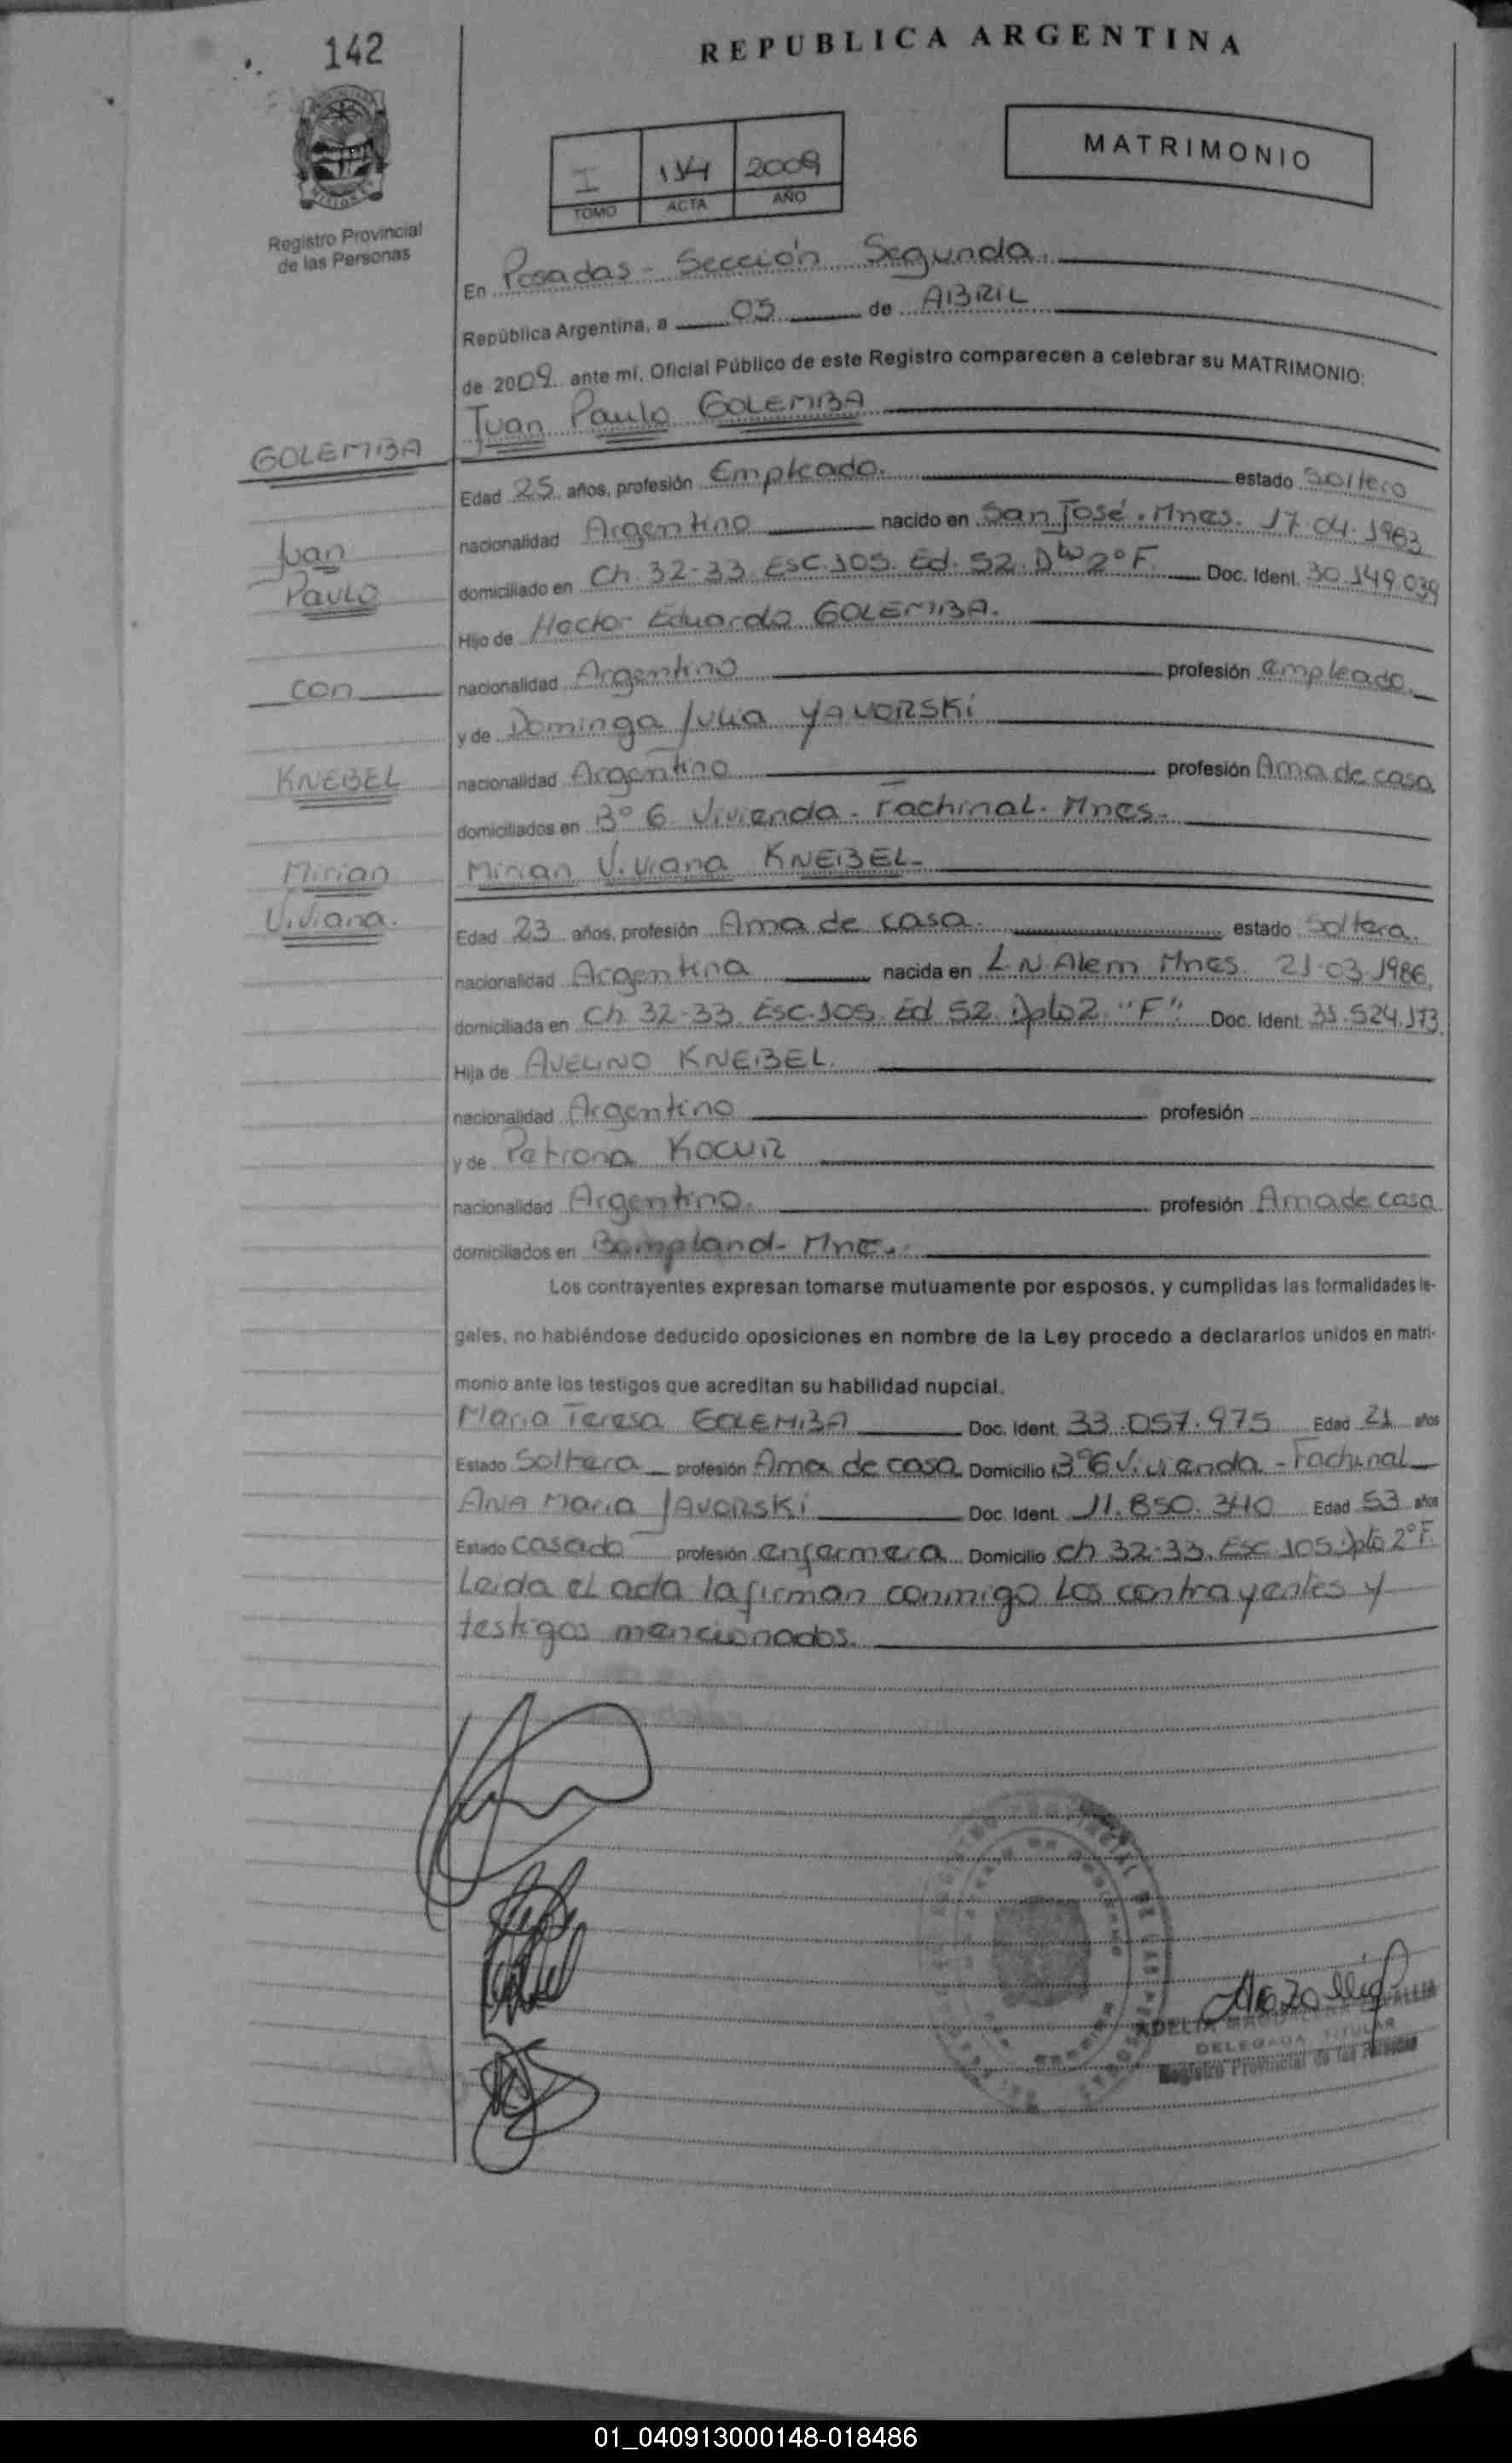 142
REPUBLICA ARGENTINA
MATRIMONIO
I 2009
TOMO ACTA AÑO
Registro Provincial
de las Personas
En Posadas - Sección Segunda.
República Argentina, a 03 de ABRIL
de 2009 ante mí, Oficial Público de este Registro comparecen a celebrar su MATRIMONIO:
Juan Paulo GOLEMBA
GOLEMBA
Edad 25 años, profesión Empleado. estado Soltero
Juan
nacionalidad Argentino nacido en San José. Mnes. 17.04.1983
Paulo
domiciliado en Ch. 32-33. Esc. 105. Ed. 52. Dto 2° F. Doc. Ident. 30.149.039
Hijo de Hector Eduardo GOLEMBA.
con
nacionalidad Argentino profesión empleado.
y de Dominga Julia YAVORSKI
KNEBEL
nacionalidad Argentino profesión Ama de casa
domiciliados en B° 6 Vivienda - Fachinal. Mnes.
Mirian
Mirian Viviana KNEBEL
Viviana.
Edad 23 años, profesión Ama de casa. estado Soltera.
nacionalidad Argentina nacida en L.N. Alem Mnes. 21.03.1986
domiciliada en Ch 32-33. Esc. 105. Ed 52. Dpto 2 "F" Doc. Ident. 524.173
Hija de AVELINO KNEBEL.
nacionalidad Argentino profesión
y de Petrona KOCUR
nacionalidad Argentino. profesión Ama de casa
domiciliados en Bompland- Mnes.
Los contrayentes expresan tomarse mutuamente por esposos, y cumplidas las formalidades le-
gales, no habiéndose deducido oposiciones en nombre de la Ley procedo a declararlos unidos en matri-
monio ante los testigos que acreditan su habilidad nupcial.
Maria Teresa GOLEMBA Doc. Ident. 33.057.975 Edad 21 años
Estado Soltera profesión Ama de casa Domicilio B° 6 Vivienda - Fachinal
ANA Maria JAVORSKI Doc. Ident. 11.850.340 Edad 53 años
Estado casado profesión enfermera Domicilio ch 32-33. Esc 105. Dpto 2° F.
Leida el acta la firman conmigo los contrayentes y
testigos mencionados.
ADELIA
DELEGADA TITULAR
Registro Provincial de las Personas
01_040913000148-018486